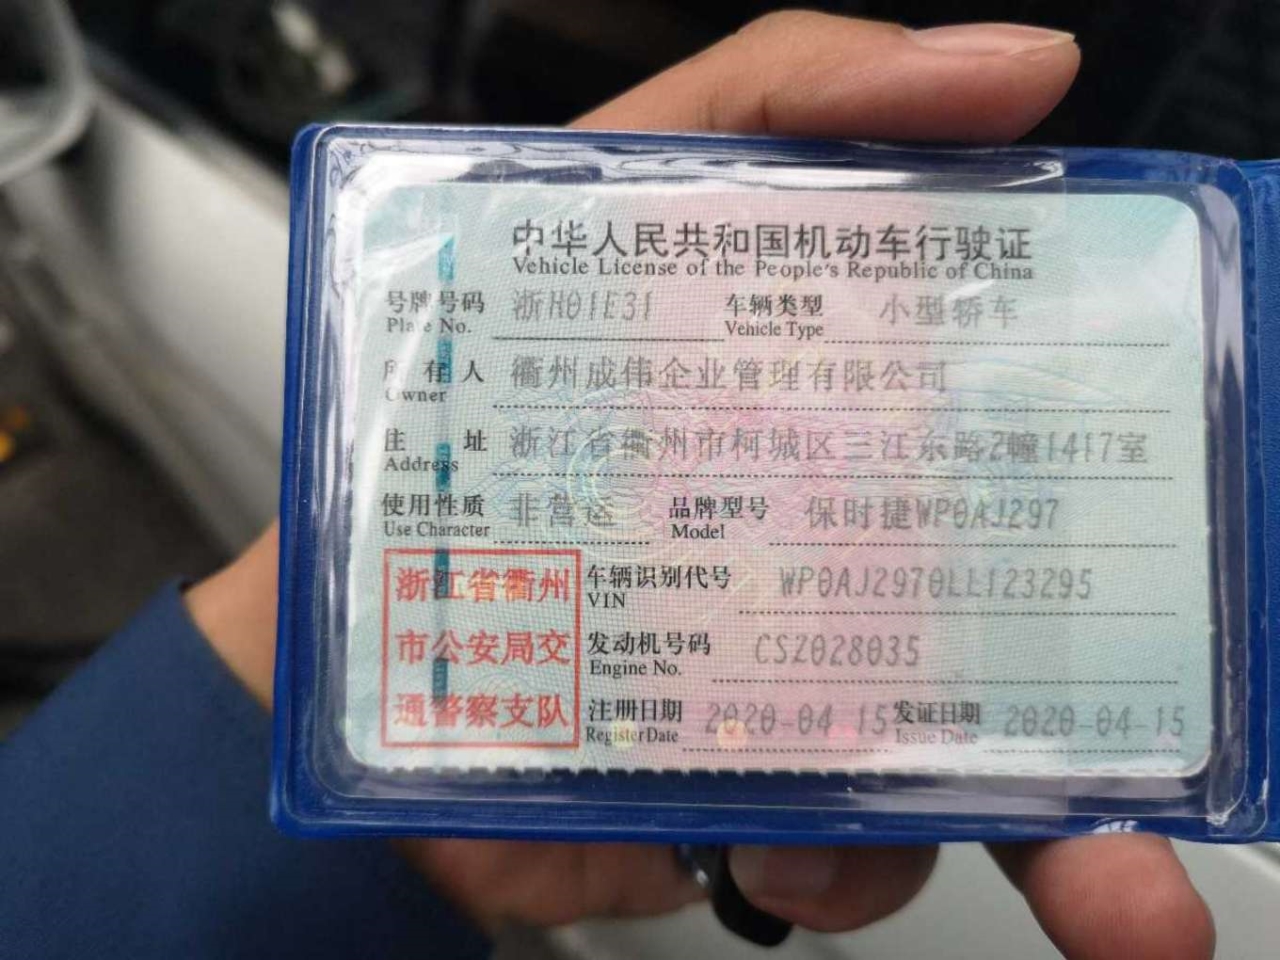 中华人民共和国机动车行驶证
Vehicle License of the People's Republic of China
号牌号码 浙H01E31 车辆类型 小型轿车
Plate No. Vehicle Type
所有人 衢州成伟企业管理有限公司
Owner
住址 浙江省衢州市柯城区三江东路2幢1417室
Address
使用性质 非营运 品牌型号 保时捷WP0AJ297
Use Character Model
浙江省衢州 车辆识别代号 WP0AJ2970LL123295
VIN
市公安局交 发动机号码 CSZ028035
Engine No.
通警察支队 注册日期 2020-04-15 发证日期 2020-04-15
Register Date Issue Date